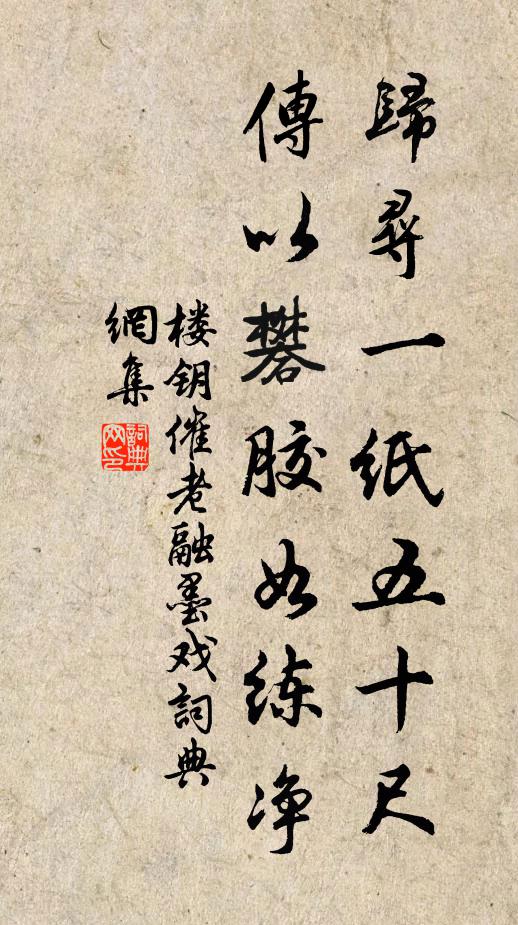 歸尋一紙五十尺
傅以礬膠如練净
楼钥催老融墨戏詞典
網集
詞典網印